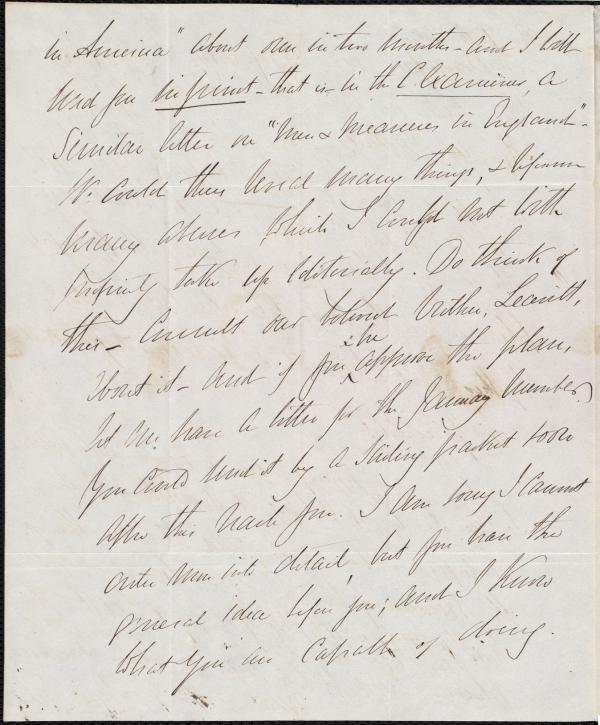 in America" about once in two months - and I will
send you in print - that is in the C. Examiner, a
similar letter on "Men & Measures in England" -
We could thus reveal many things, &
many abuses which I could not with
propriety take up editorially. Do think of
this - Consult our beloved brother, Leavitt,
about it - and if you & he approve the plan,
let me have a letter for the January number.
You could send it by a sailing packet soon
after this reach you. I am sorry I cannot
enter more into detail, but you have the
general idea before you; and I know
what you are capable of doing.